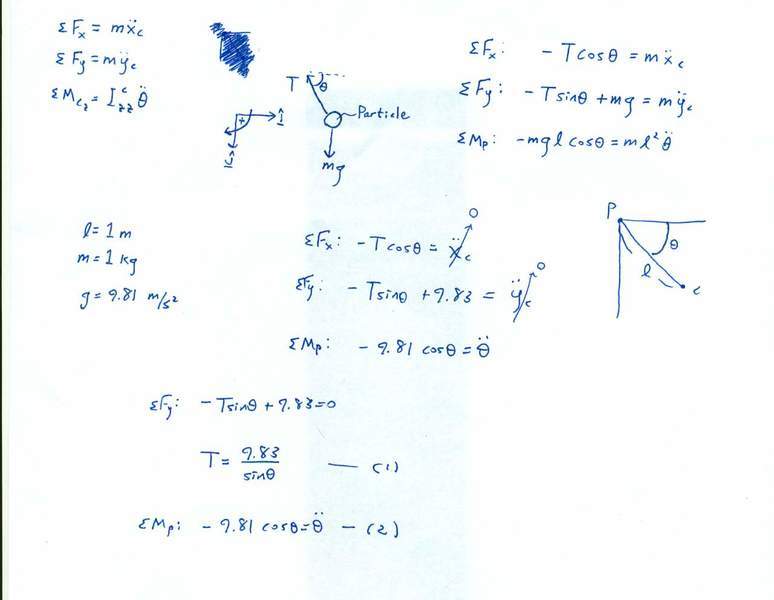 ΣFx = mẍc
ΣFy = mÿc
ΣMcz = I^c_zz θ̈
T
θ
Particle
mg
+
î
ŷ
ΣFx: -Tcosθ = mẍc
ΣFy: -Tsinθ + mg = mÿc
ΣMp: -mglcosθ = ml²θ̈
l = 1 m
m = 1 kg
g = 9.81 m/s²
ΣFx: -Tcosθ = ẍc 0
ΣFy: -Tsinθ + 9.83 = ÿc 0
ΣMp: -9.81 cosθ = θ̈
P
θ
l
c
ΣFy: -Tsinθ + 9.83 = 0
T = 9.83/sinθ — (1)
ΣMp: -9.81 cosθ = θ̈ — (2)